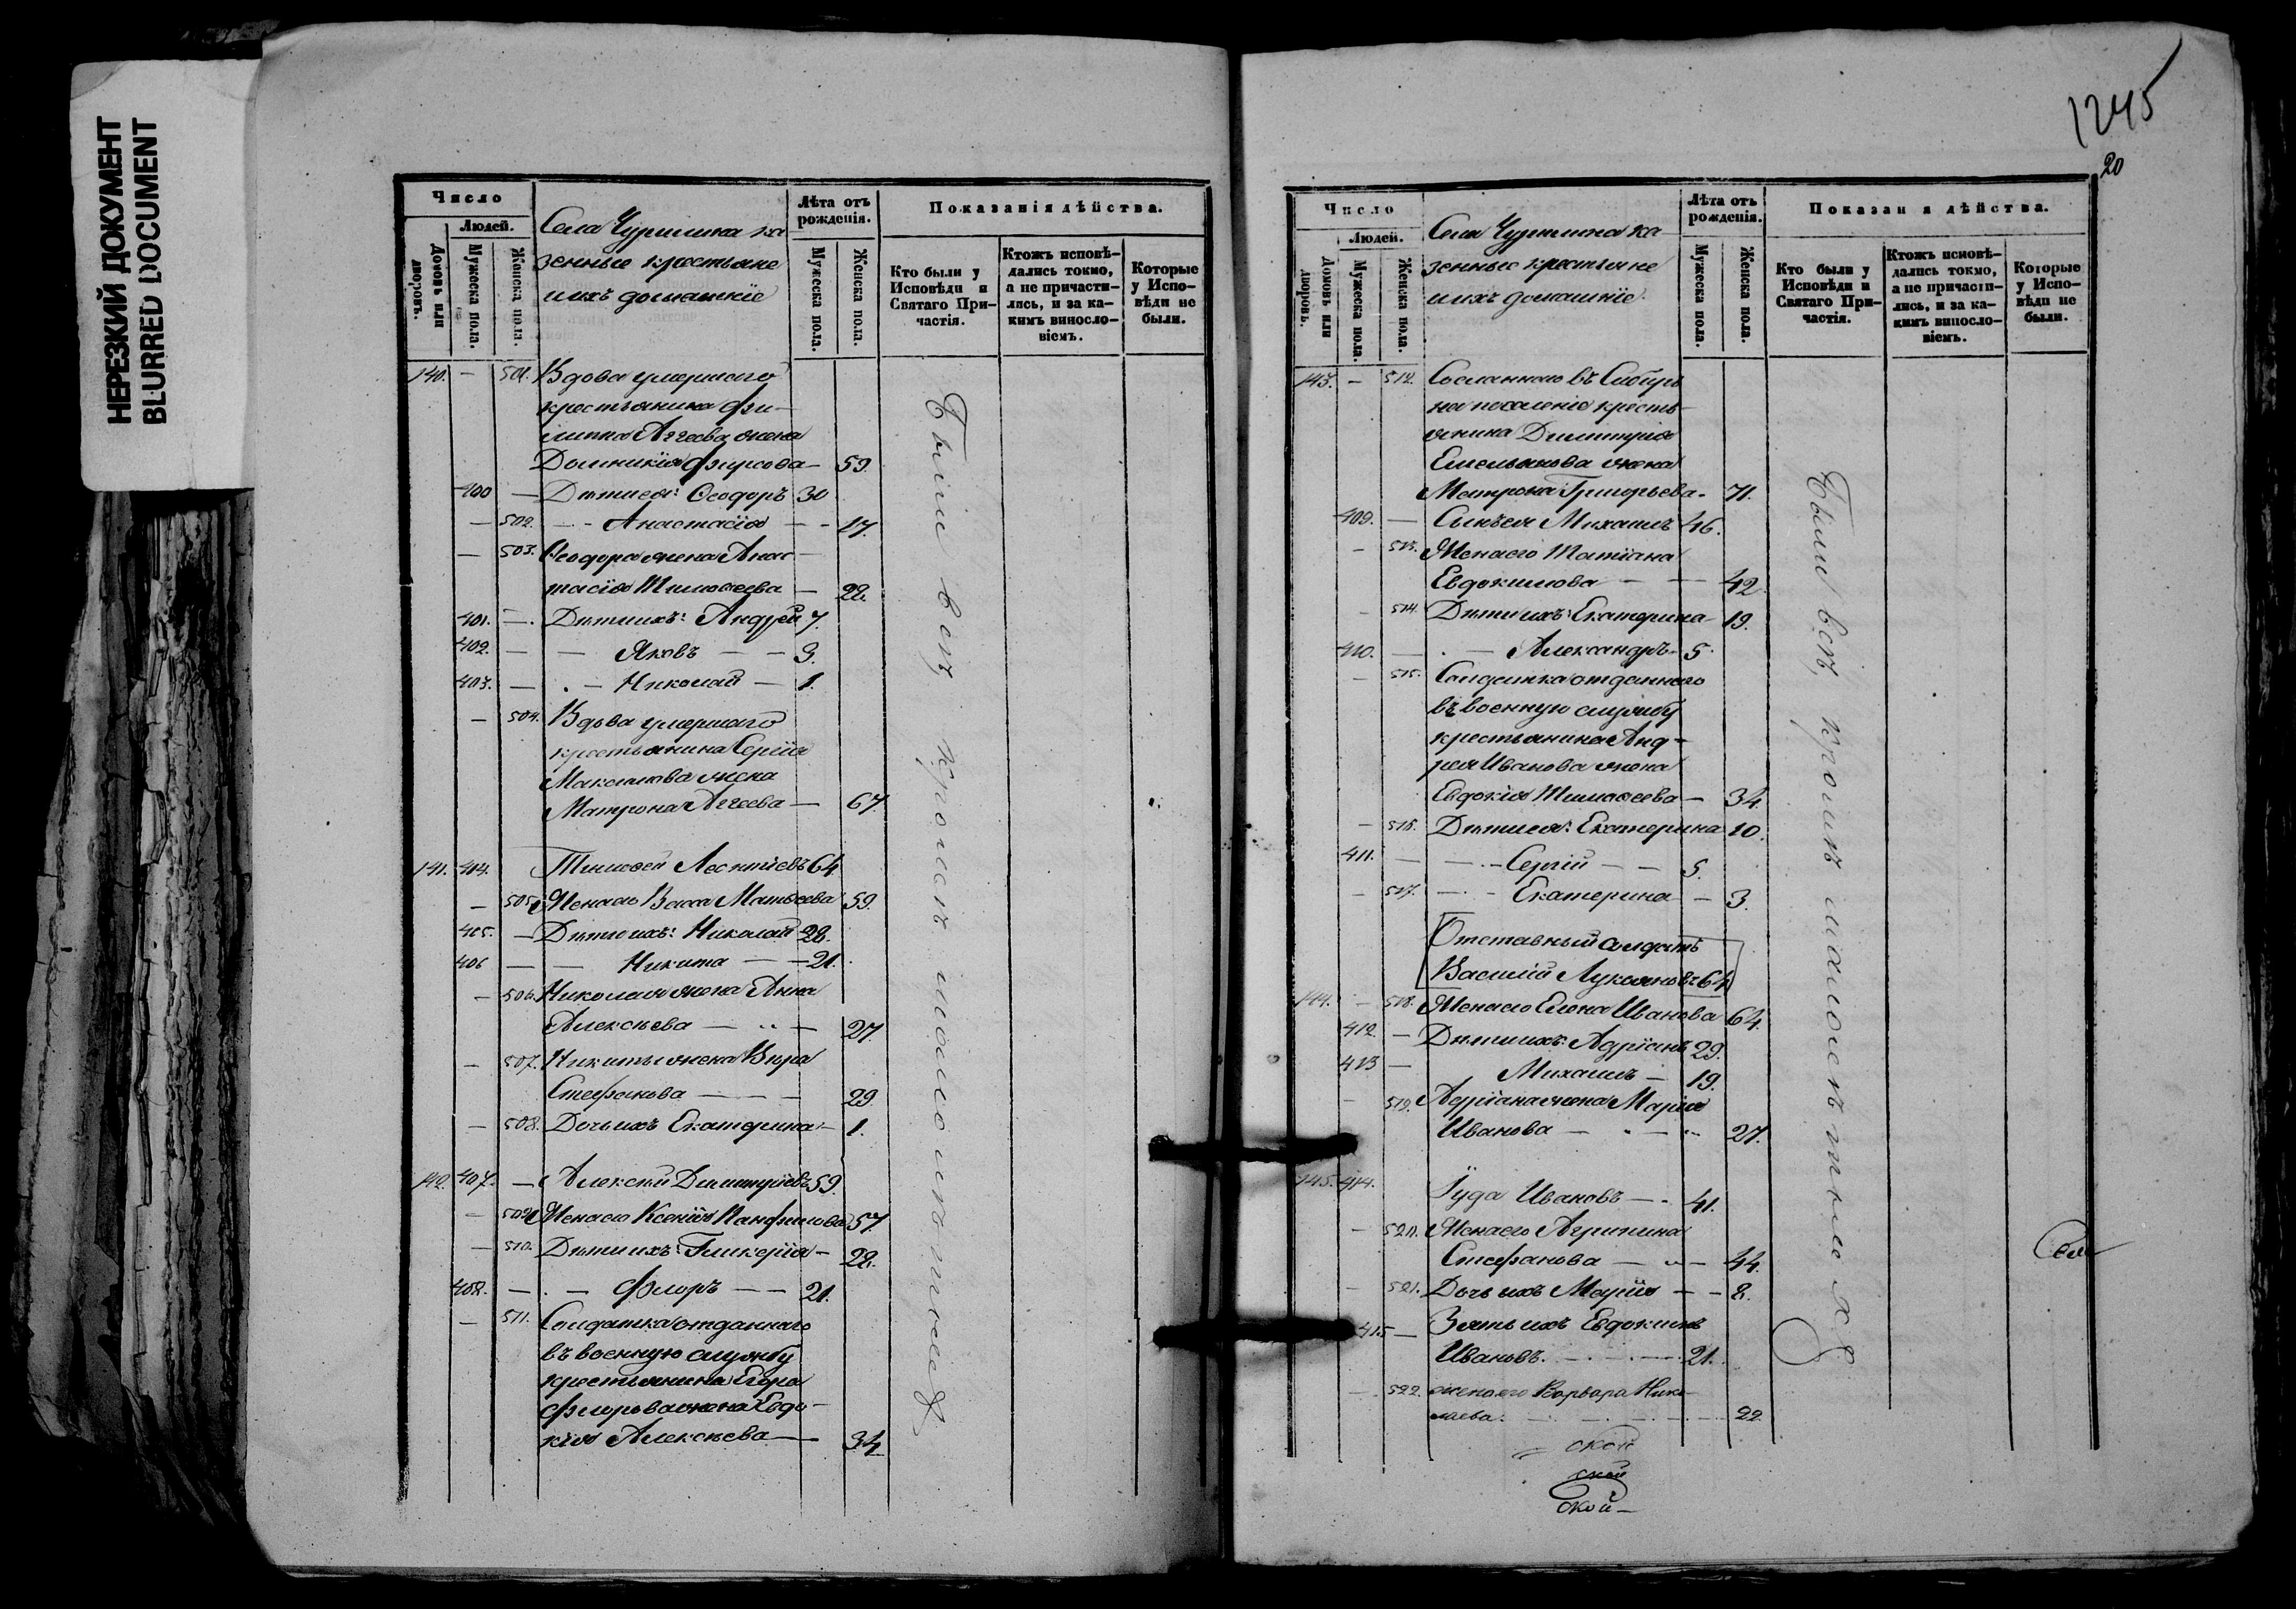 НЕРЕЗКИЙ ДОКУМЕНТ
BLURRED DOCUMENT
Число
Людей.
Домовъ или дворовъ.
Мужеска пола.
Женска пола.
Села Чурилина ка
зенные крестьяне
ихъ домашніе
Лѣта отъ рожденія.
Мужеска пола.
Женска пола.
Показанія дѣйства.
Кто были у Исповѣди и Святаго Причастія.
Ктожъ исповѣдались токмо, а не причастились, и за какимъ винословіемъ.
Которые у Исповѣди не были.
140. — 501. Вдова умершаго
крестьянина Фи-
липпа Аггеева жена
Домникія Фирсова — 59.
400 — Дѣти ея: Ѳеодоръ 30
— 502. — - Анастасія — - 17.
— 503. Ѳеодора жена Анас-
тасія Тимоѳеева — 28.
401. — Дѣти ихъ: Андрей 7.
402. — — Яковъ — — 3.
403. — — Николай — 1.
— 504. Вдова умершаго
крестьянина Сергія
Максимова жена
Матрона Аггеева — 67.
141. 404. Тимоѳей Леонтіевъ 64
— 505. Жена его Васса Матвѣева 59.
405. — Дѣти ихъ: Николай 28.
406 — — Никита — — 21.
— 506. Николая жена Анна
Алексѣева — — 27.
— 507. Никиты жена Вѣра
Стефанова — — — 29.
— 508. Дочь ихъ Екатерина — 1.
142. 407. — Алексій Димитріевъ 59.
— 509. Жена его Ксенія Панфилова 57.
— 510. Дѣти ихъ: Гликерія — 28.
408. — — Флоръ — — 21.
— 511. Солдатка отданнаго
въ военную службу
крестьянина Егора
Флорова жена Евдо-
кія Алексѣева — 34
Были всѣ, кромѣ малолѣтныхъ
1245
20
Число
Людей.
Домовъ или дворовъ.
Мужеска пола.
Женска пола.
Села Чурилина ка
зенные крестьяне
ихъ домашніе.
Лѣта отъ рожденія.
Мужеска пола.
Женска пола.
Показан я дѣйства.
Кто были у Исповѣди и Святаго Причастія.
Ктожъ исповѣдались токмо, а не причастились, и за какимъ винословіемъ.
Которые у Исповѣди не были.
143. — 512. Сосланнаго въ Сибирь
на поселеніе кресть-
янина Димитрія
Емельянова жена
Матрона Григорьева — 71.
409. — Сынъ ея Михаилъ 46.
— 513. Жена его Татіана
Евдокимова — — 42
— 514. Дѣти ихъ: Екатерина — 19.
410. — — Александръ — 5.
— 515. Солдатка отданнаго
въ военную службу
крестьянина Анд-
рея Иванова жена
Евдокія Тимоѳеева — 34.
— 516. Дѣти ея: Екатерина 10.
411. — — Сергій — — 5.
— 517. — - Екатерина — 3.
Отставный солдатъ
Василій Лукояновъ 64
144. — 518. Жена его Елена Иванова 64.
412. — Дѣти ихъ: Адріанъ 29.
413 — Михаилъ — 19.
— 519. Адріана жена Марія
Иванова — — 27.
145. 414. Іуда Ивановъ — 41.
— 520. Жена его Агрипина
Стефанова — — 44.
— 521. Дочь ихъ Марія — — 8.
415 — Зять ихъ Евдокимъ
Ивановъ. — — 21.
— 522. жена его Варвара Нико-
лаева. — — 22.
ской
ской
ской —
Были всѣ, кромѣ малолѣтныхъ
Села